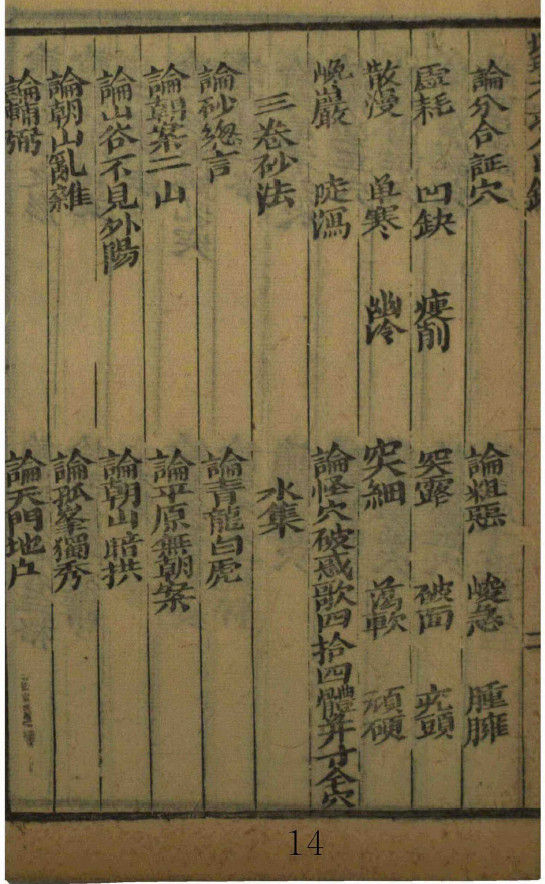 論分合証穴 論粗惡 峻急 臃腫
虛耗 凹缺 瘦削 突露 破面 疙頭
散漫 单寒 幽冷 突細 蕩軟 頑硬
巉巖 陡瀉 論怪穴破惑歌四拾四體并寸金穴
三卷砂法 水集
論砂緫言 論青龍白虎
論朝案二山 論平原無朝案
論山谷不見外陽 論朝山暗拱
論朝山亂雜 論孤峯獨秀
論輔弼 論天門地户
14